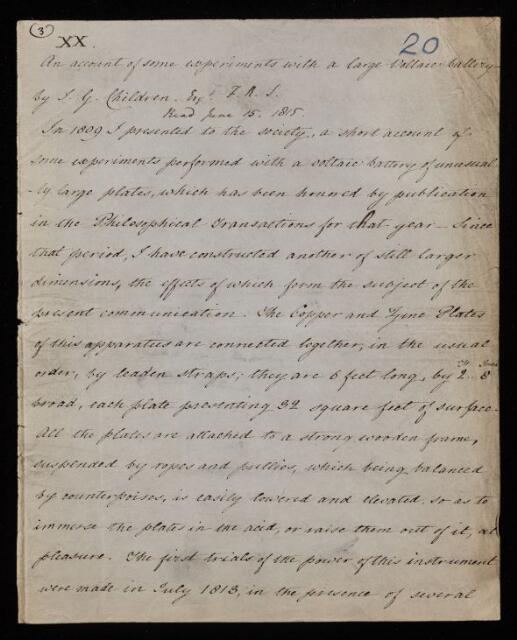 3
XX.
20
An account of some experiments with a large Voltaic battery
by J. G. Children Esqr. F. R. S.
Read June 15. 1815.
In 1809 I presented to the society, a short account of
some experiments performed with a voltaic battery of unusual
-ly large plates, which has been honored by publication
in the Philosophical Transactions for that year — Since
that period, I have constructed another of still larger
dimensions, the effects of which form the subject of the
present communication. The Copper and Zinc Plates
of this apparatus are connected together, in the usual
order, by leaden straps; they are 6 feet long, by 2 8
broad, each plate presenting 32 square feet of surface.
All the plates are attached to a strong wooden frame,
suspended by ropes and pullies, which being balanced
by counterpoises, is easily lowered and elevated, so as to
immerse the plates in the acid, or raise them out of it, at
pleasure. The first trials of the power of this instrument
were made in July 1813, in the presence of several